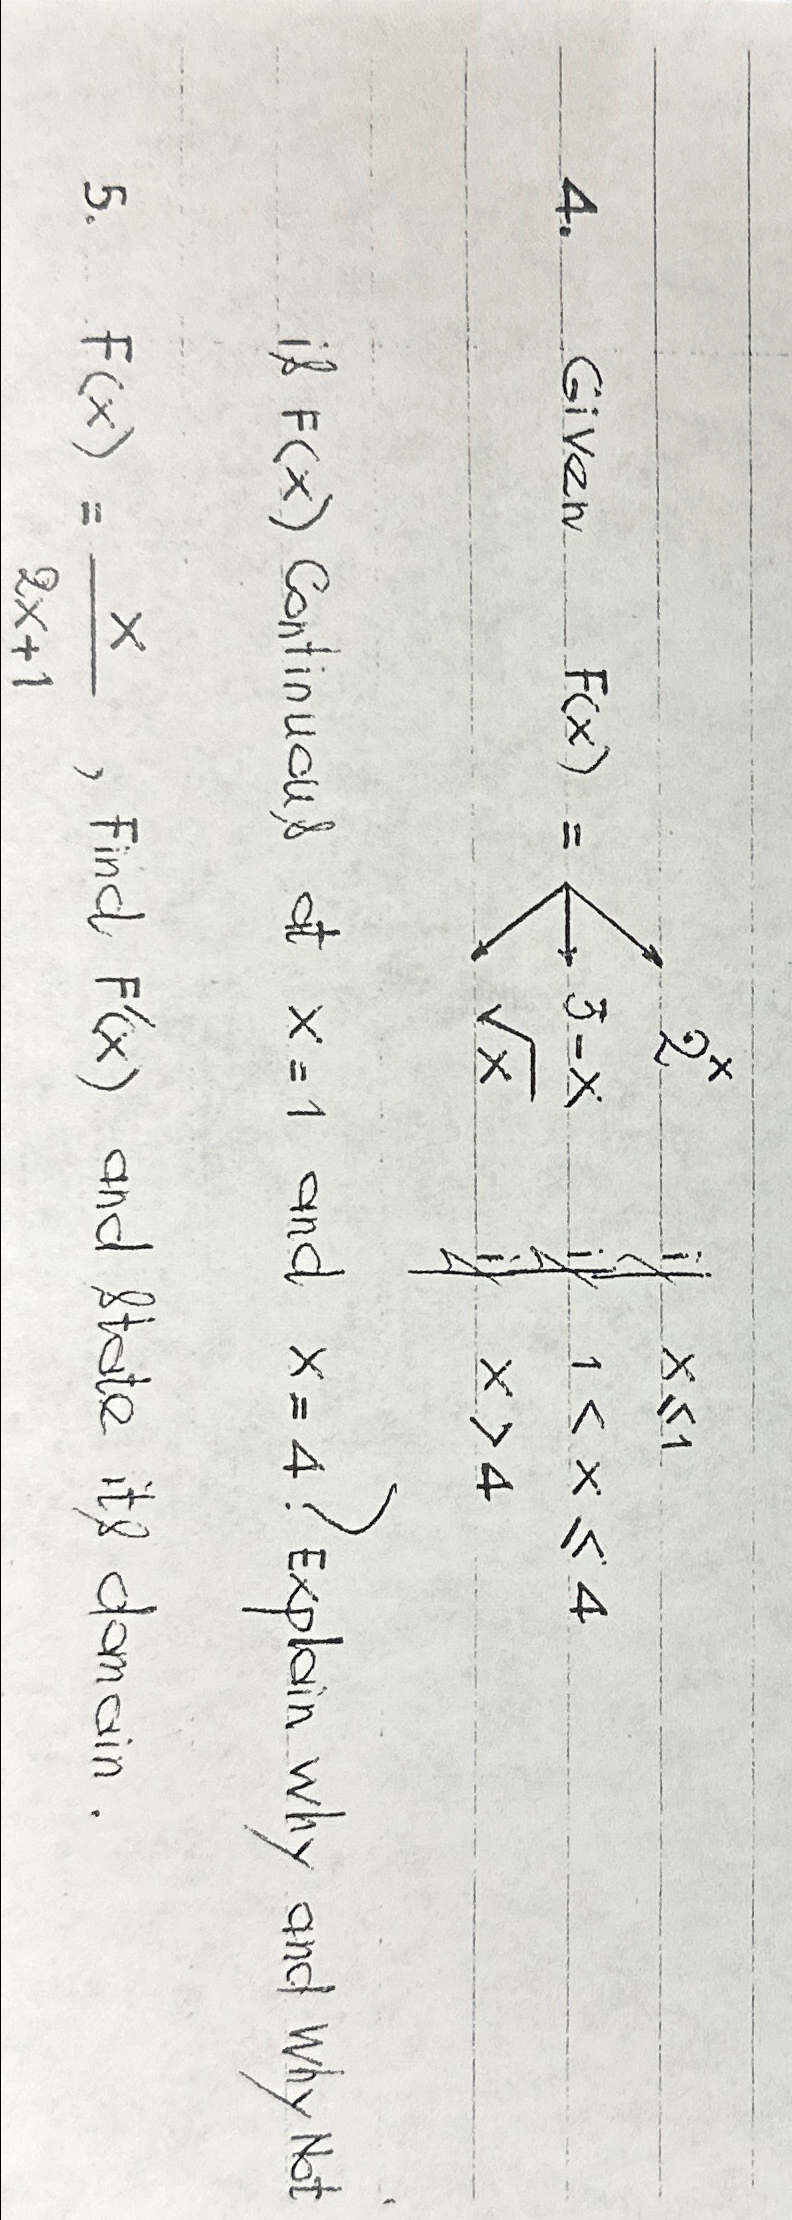 2ˣ ; x ≤ 1
4. Given F(x) = 3-x ; 1 < x ≤ 4
√x ; x > 4
is F(x) Continuous at x = 1 and x = 4? Explain why and why Not
5. F(x) = x/2x+1 , Find F'(x) and State its domain.